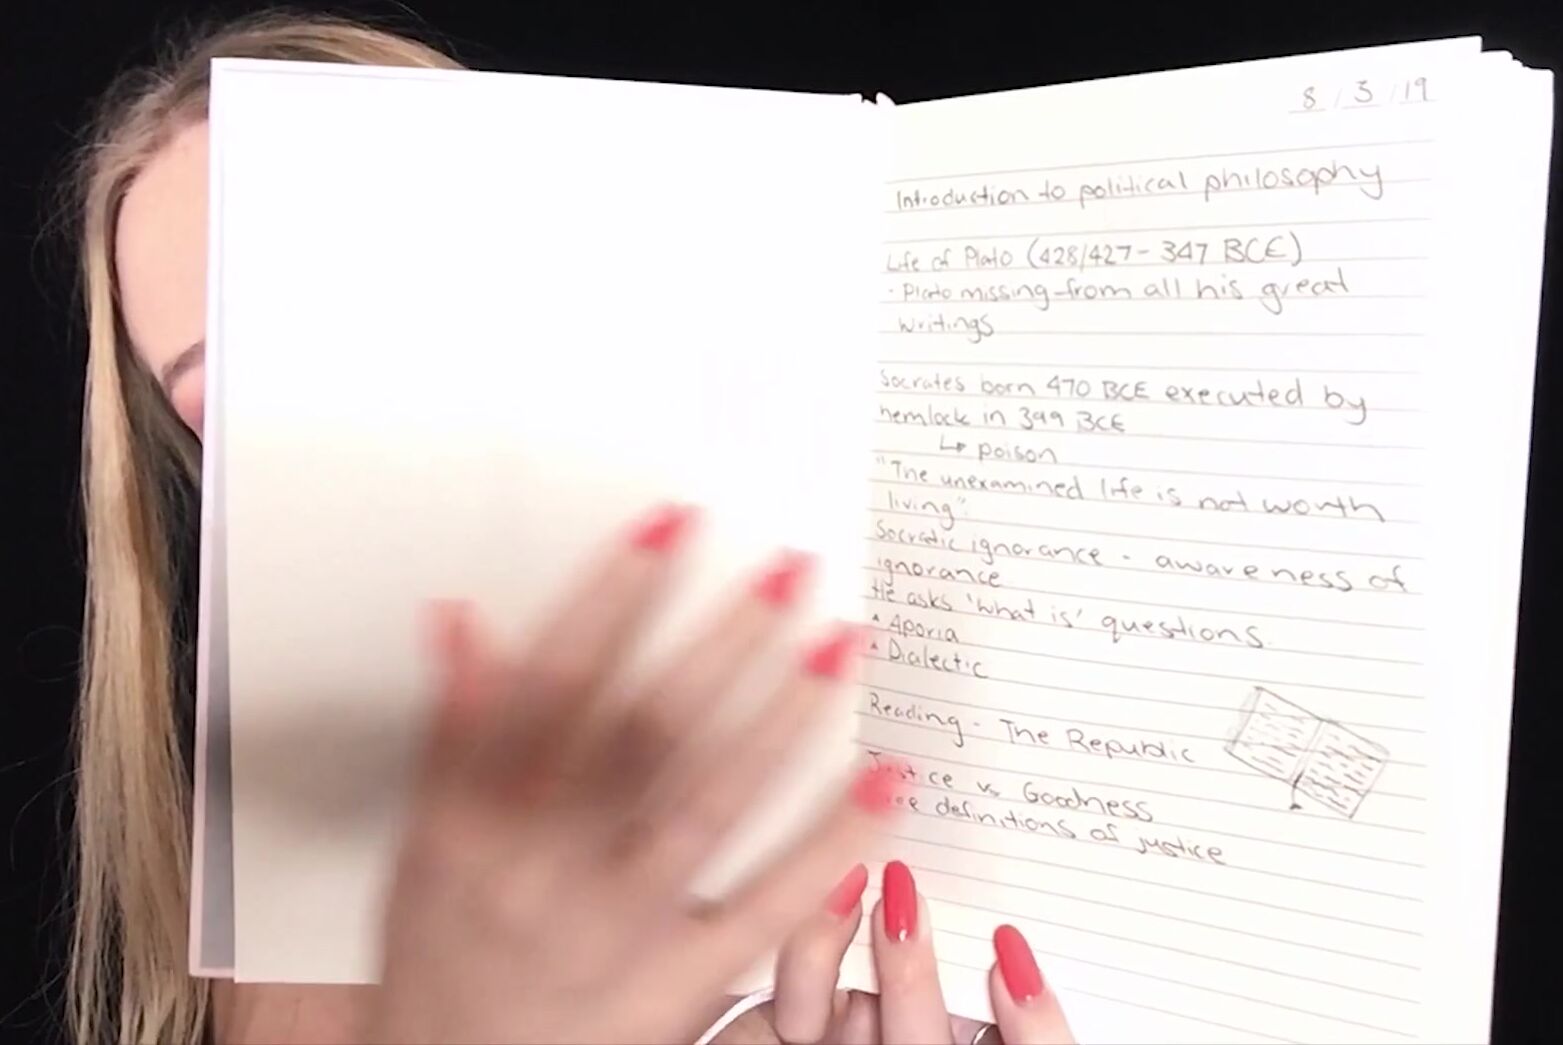 8 / 3 / 19
Introduction to political philosophy
Life of Plato (428/427 - 347 BCE)
· Plato missing from all his great
writings
Socrates born 470 BCE executed by
hemlock in 399 BCE
↳ poison
"The unexamined life is not worth
living"
Socratic ignorance - awareness of
ignorance
He asks 'what is' questions.
* Aporia
* Dialectic
Reading - The Republic
Justice vs Goodness
definitions of justice